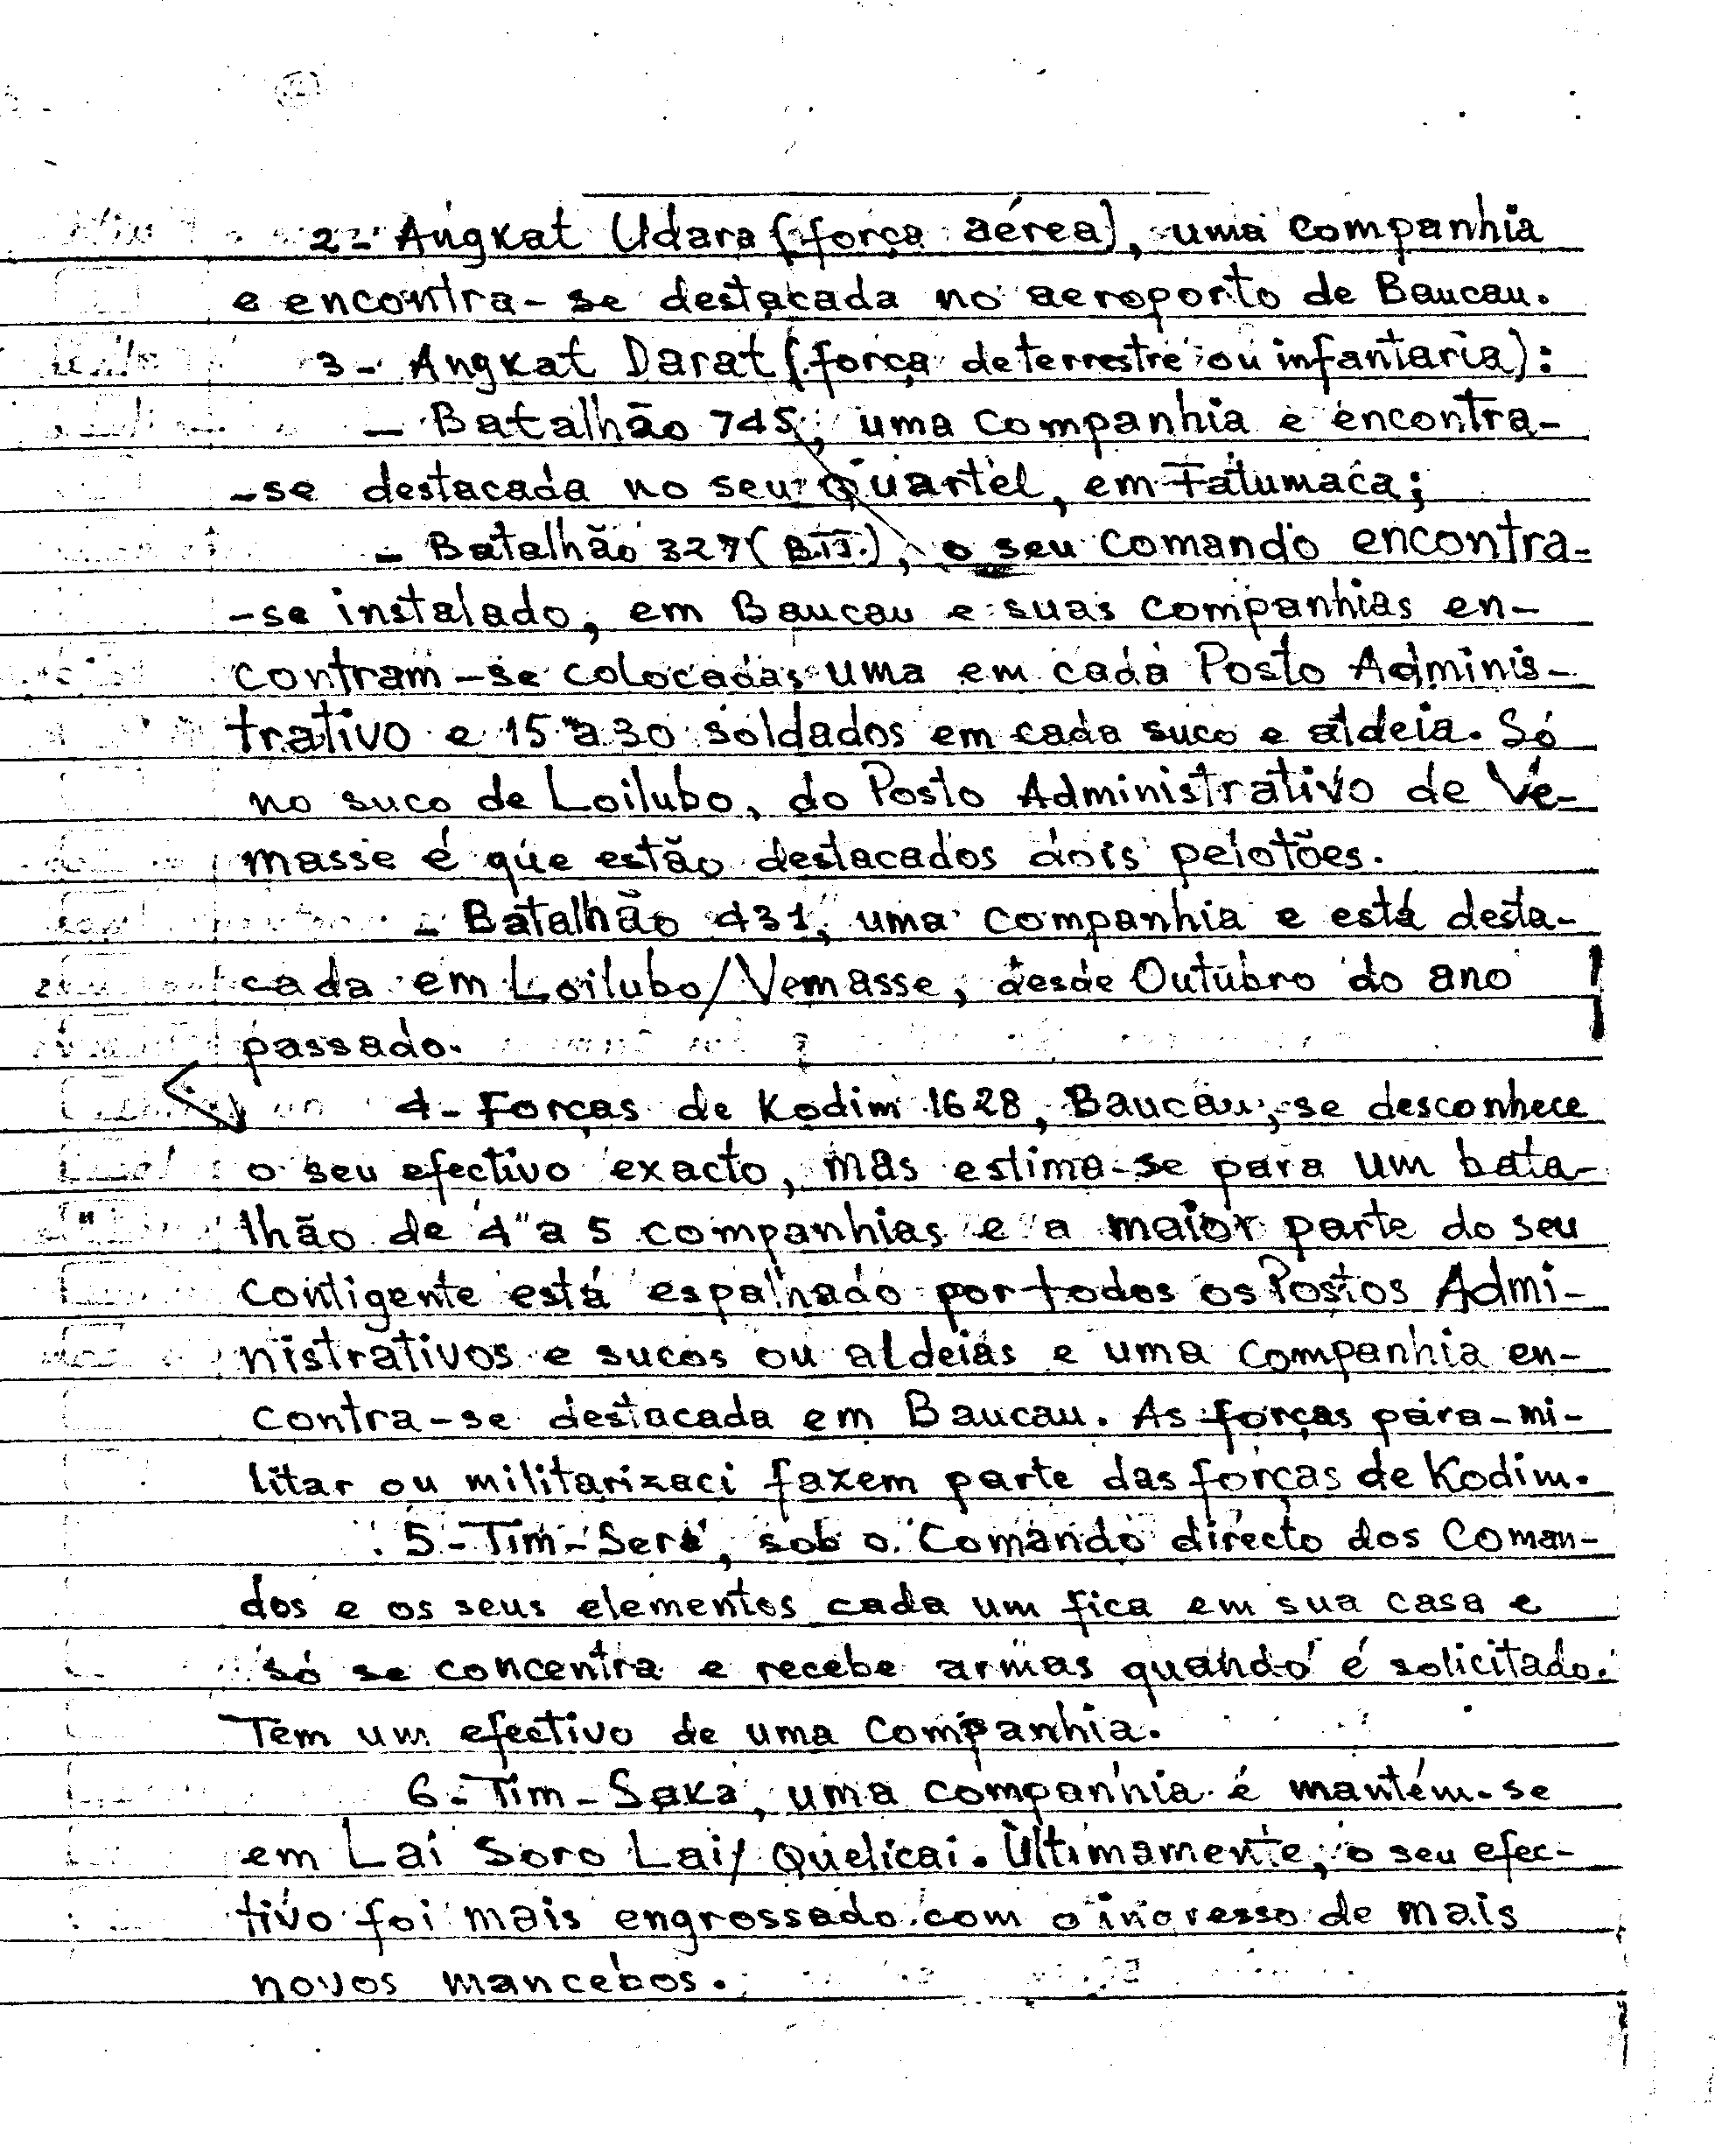 2- Angkat Udara (força aérea), uma companhia
e encontra-se destacada no aeroporto de Baucau.
3- Angkat Darat (força de terrestre ou infantaria):
- Batalhão 745, uma companhia e encontra-
-se destacada no seu Quartel, em Fatumaca;
- Batalhão 327 (BTT.), o seu comando encontra-
-se instalado, em Baucau e suas companhias en-
contram-se colocadas uma em cada Posto Adminis-
trativo e 15 a 30 soldados em cada suco e aldeia. Só
no suco de Loilubo, do Posto Administrativo de Ve-
masse é que estão destacados dois pelotões.
- Batalhão 431, uma companhia e está desta-
cada em Loilubo/Vemasse, desde Outubro do ano
passado.
4- Forças de Kodim 1628, Baucau, se desconhece
o seu efectivo exacto, mas estima-se para um bata-
lhão de 4 a 5 companhias e a maior parte do seu
contigente está espalhado por todos os Postos Admi-
nistrativos e sucos ou aldeias e uma companhia en-
contra-se destacada em Baucau. As forças para-mi-
litar ou militarizaci fazem parte das forças de Kodim.
5- Tim-Sera, sob o Comando directo dos Coman-
dos e os seus elementos cada um fica em sua casa e
só se concentra e recebe armas quando é solicitado.
Tem um efectivo de uma companhia.
6- Tim-Saka, uma companhia é mantém-se
em Lai Soro Lai/Quelicai. Ùltimamente, o seu efec-
tivo foi mais engrossado com o ingresso de mais
novos mancebos.